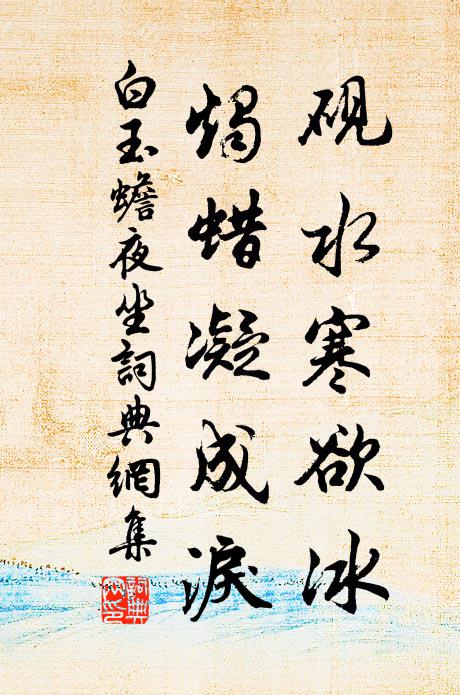 砚水寒欲冰
烛蜡凝成淚
白玉蟾夜坐詞典網集